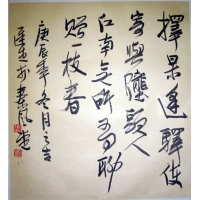 逢驛使
寄與隴頭人
江南無所有聊
贈一枝春
庚辰年冬月之吉